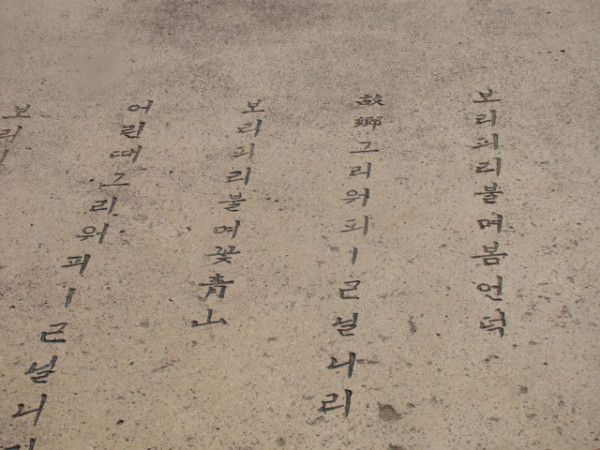 보리피리불며봄언덕
故鄕그리워피ㅣㄹ닐니리
보리피리불며꽃靑山
어린때그리워피ㅣㄹ닐니리
보리